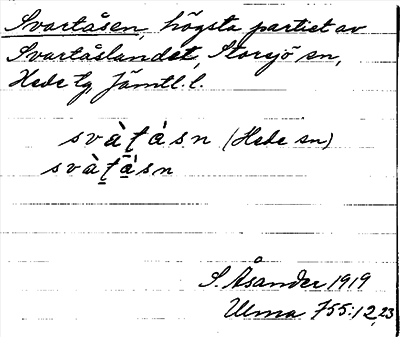 Svartåsen, högsta partiet av
Svartåslandet, Storsjö sn,
Hede tg, Jämtl. l.
svàʈá s.n (Hede sn)
svàʈā́sn
S. Åsander 1919
Ulma 755:12,23